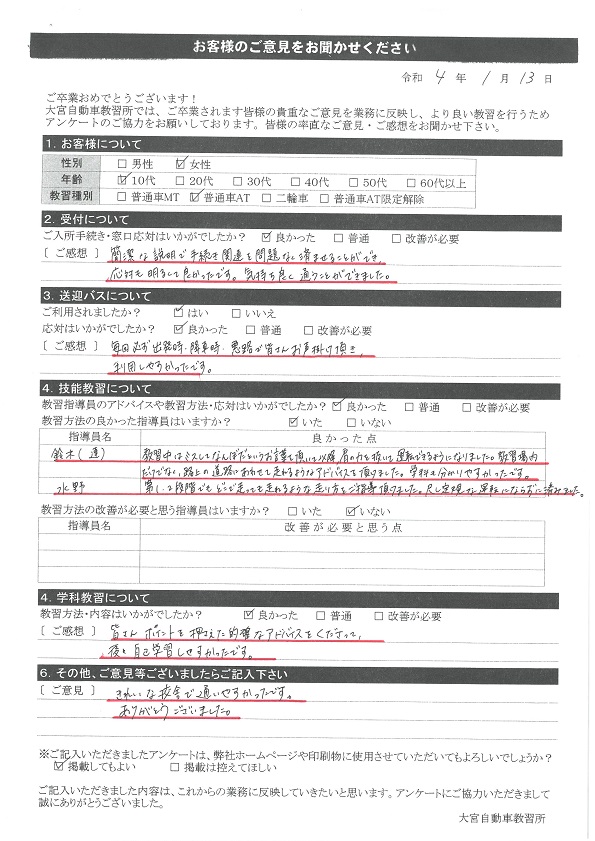 お客様のご意見をお聞かせください
令和 4 年 1 月 13 日
ご卒業おめでとうございます！
大宮自動車教習所では、ご卒業されます皆様の貴重なご意見を業務に反映し、より良い教習を行うため
アンケートのご協力をお願いしております。皆様の率直なご意見・ご感想をお聞かせ下さい。
1. お客様について
性別 □ 男性 ☑ 女性
年齢 ☑ 10代 □ 20代 □ 30代 □ 40代 □ 50代 □ 60代以上
教習種別 □ 普通車MT ☑ 普通車AT □ 二輪車 □ 普通車AT限定解除
2. 受付について
ご入所手続き・窓口応対はいかがでしたか？ ☑ 良かった □ 普通 □ 改善が必要
［ ご感想 ］ 簡潔な説明で手続き関連を問題なく済ませることができ、
応対も明るくて良かったです。気持ち良く通うことができました。
3. 送迎バスについて
ご利用されましたか？ ☑ はい □ いいえ
応対はいかがでしたか？ ☑ 良かった □ 普通 □ 改善が必要
［ ご感想 ］ 毎回必ず出発時・降車時・悪路で皆さんお声掛け頂き、
利用しやすかったです。
4. 技能教習について
教習指導員のアドバイスや教習方法・応対はいかがでしたか？ ☑ 良かった □ 普通 □ 改善が必要
教習方法の良かった指導員はいますか？ ☑ いた □ いない
指導員名 良かった点
鈴木（道） 教習中はミスしてなんぼだというお言葉を頂いて以降、肩の力を抜いて運転できるようになりました。教習場内
だけでない、路上の道路にあわせて走れるようなアドバイスを頂けました。学科も分かりやすかったです。
水野 第1、2段階でもどこで走っても走れるような走り方をご指導頂けました。 な運転にならずに済みました。
教習方法の改善が必要と思う指導員はいますか？ □ いた ☑ いない
指導員名 改善が必要と思う点
4. 学科教習について
教習方法・内容はいかがでしたか？ ☑ 良かった □ 普通 □ 改善が必要
［ ご感想 ］ 皆さん ポイントを押さえた的確なアドバイスをくださって、
後の自己学習しやすかったです。
6. その他、ご意見等ございましたらご記入下さい
［ ご意見 ］ きれいな校舎で通いやすかったです。
ありがとうございました。
※ご記入いただきましたアンケートは、弊社ホームページや印刷物に使用させていただいてもよろしいでしょうか？
☑ 掲載してもよい □ 掲載は控えてほしい
ご記入いただきました内容は、これからの業務に反映していきたいと思います。アンケートにご協力いただきまして
誠にありがとうございました。
大宮自動車教習所